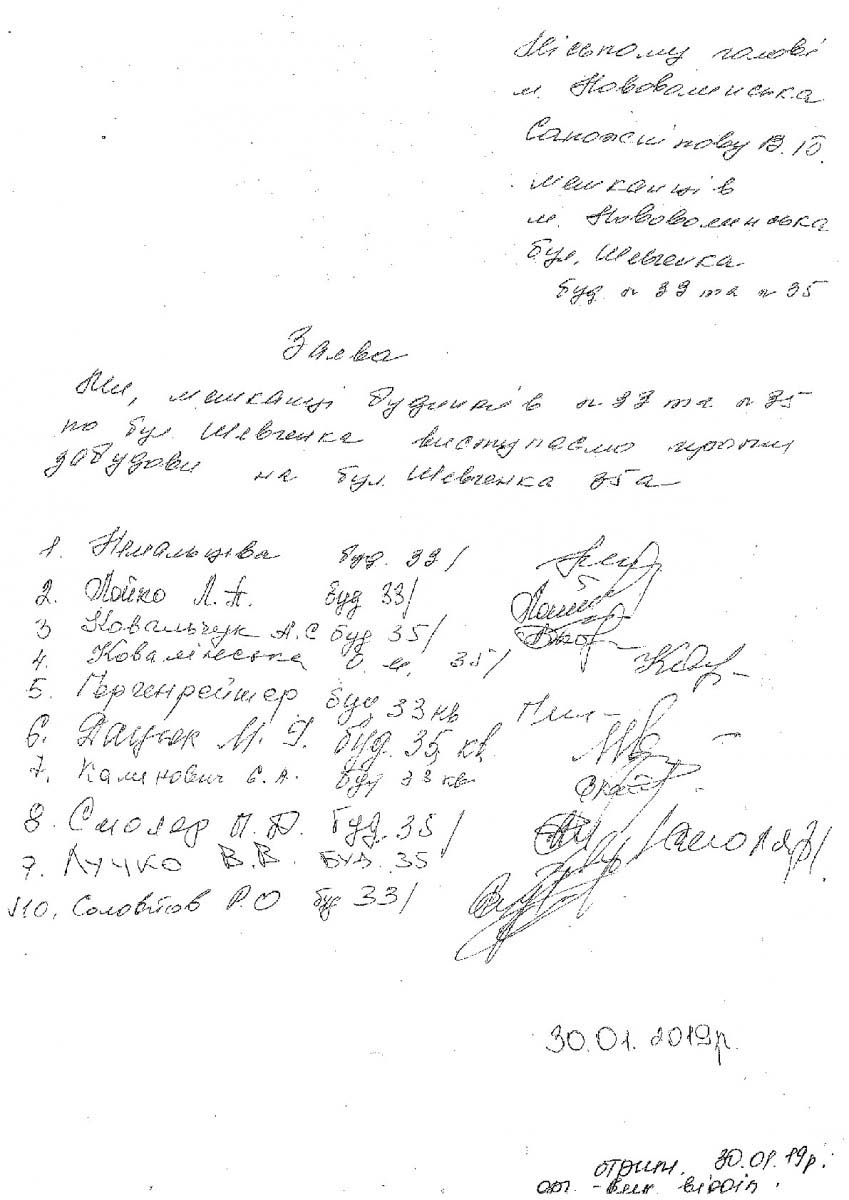 Міському голові
м. Нововолинська
Сапожнікову В.Б.
мешканців
м. Нововолинська
бул. Шевченка
буд. n 33 та n 35
Заява
Ми, мешканці будинків n 33 та n 35
по бул. Шевченка виступаємо проти
забудови на бул. Шевченка 35а
1. буд. 33/
2. Лойко Л.А. буд 33/
3 Ковальчук А.С буд 35/
4. О. М. 35/
5. Гергенрейтер буд 33 кв
6. Дацюк М. Г. буд. 35, кв.
7. Калинович Є. А. буд 33 кв
8. Смоляр П. Д. буд. 35/ /Смоляр/
9. Лучко В.В. буд. 35
10. Соловйов Р.О буд 33/
30.01.2019р.
отрим. 30.01.19р.